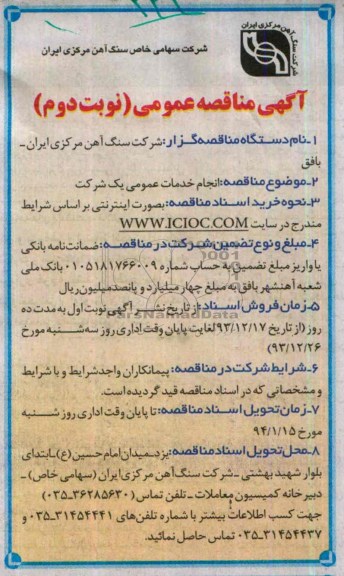 شرکت سنگ آهن مرکزی ایران
شرکت سهامی خاص سنگ آهن مرکزی ایران
آگهی مناقصه عمومی (نوبت دوم)
۱ـ نام دستگاه مناقصه گزار: شرکت سنگ آهن مرکزی ایران ـ
بافق
۲ـ موضوع مناقصه: انجام خدمات عمومی یک شرکت
۳ـ نحوه خرید اسناد مناقصه: بصورت اینترنتی بر اساس شرایط
مندرج در سایت WWW.ICIOC.COM
۴ـ مبلغ و نوع تضمین شرکت در مناقصه: ضمانت نامه بانکی
یا واریز مبلغ تضمین به حساب شماره ۰۱۰۵۱۸۱۷۶۶۰۰۹ بانک ملی
شعبه آهنشهر بافق به مبلغ چهار میلیارد و پانصد میلیون ریال
۵ـ زمان فروش اسناد: از تاریخ نشر آگهی نوبت اول به مدت ده
روز (از تاریخ ۹۳/۱۲/۱۷ لغایت پایان وقت اداری روز سه شنبه مورخ
۹۳/۱۲/۲۶)
۶ـ شرایط شرکت در مناقصه: پیمانکاران واجد شرایط و با شرایط
و مشخصاتی که در اسناد مناقصه قید گردیده است.
۷ـ زمان تحویل اسناد مناقصه: تا پایان وقت اداری روز شنبه
مورخ ۹۴/۱/۱۵
۸ـ محل تحویل اسناد مناقصه: یزد ـ میدان امام حسین (ع) ـ ابتدای
بلوار شهید بهشتی ـ شرکت سنگ آهن مرکزی ایران (سهامی خاص) ـ
دبیرخانه کمیسیون معاملات ـ تلفن تماس (۳۶۲۸۵۶۳۰ـ۰۳۵)
جهت کسب اطلاعات بیشتر با شماره تلفن های ۳۱۴۵۴۴۴۱ـ۰۳۵ و
۳۱۴۵۴۴۳۷ـ۰۳۵ تماس حاصل نمائید.